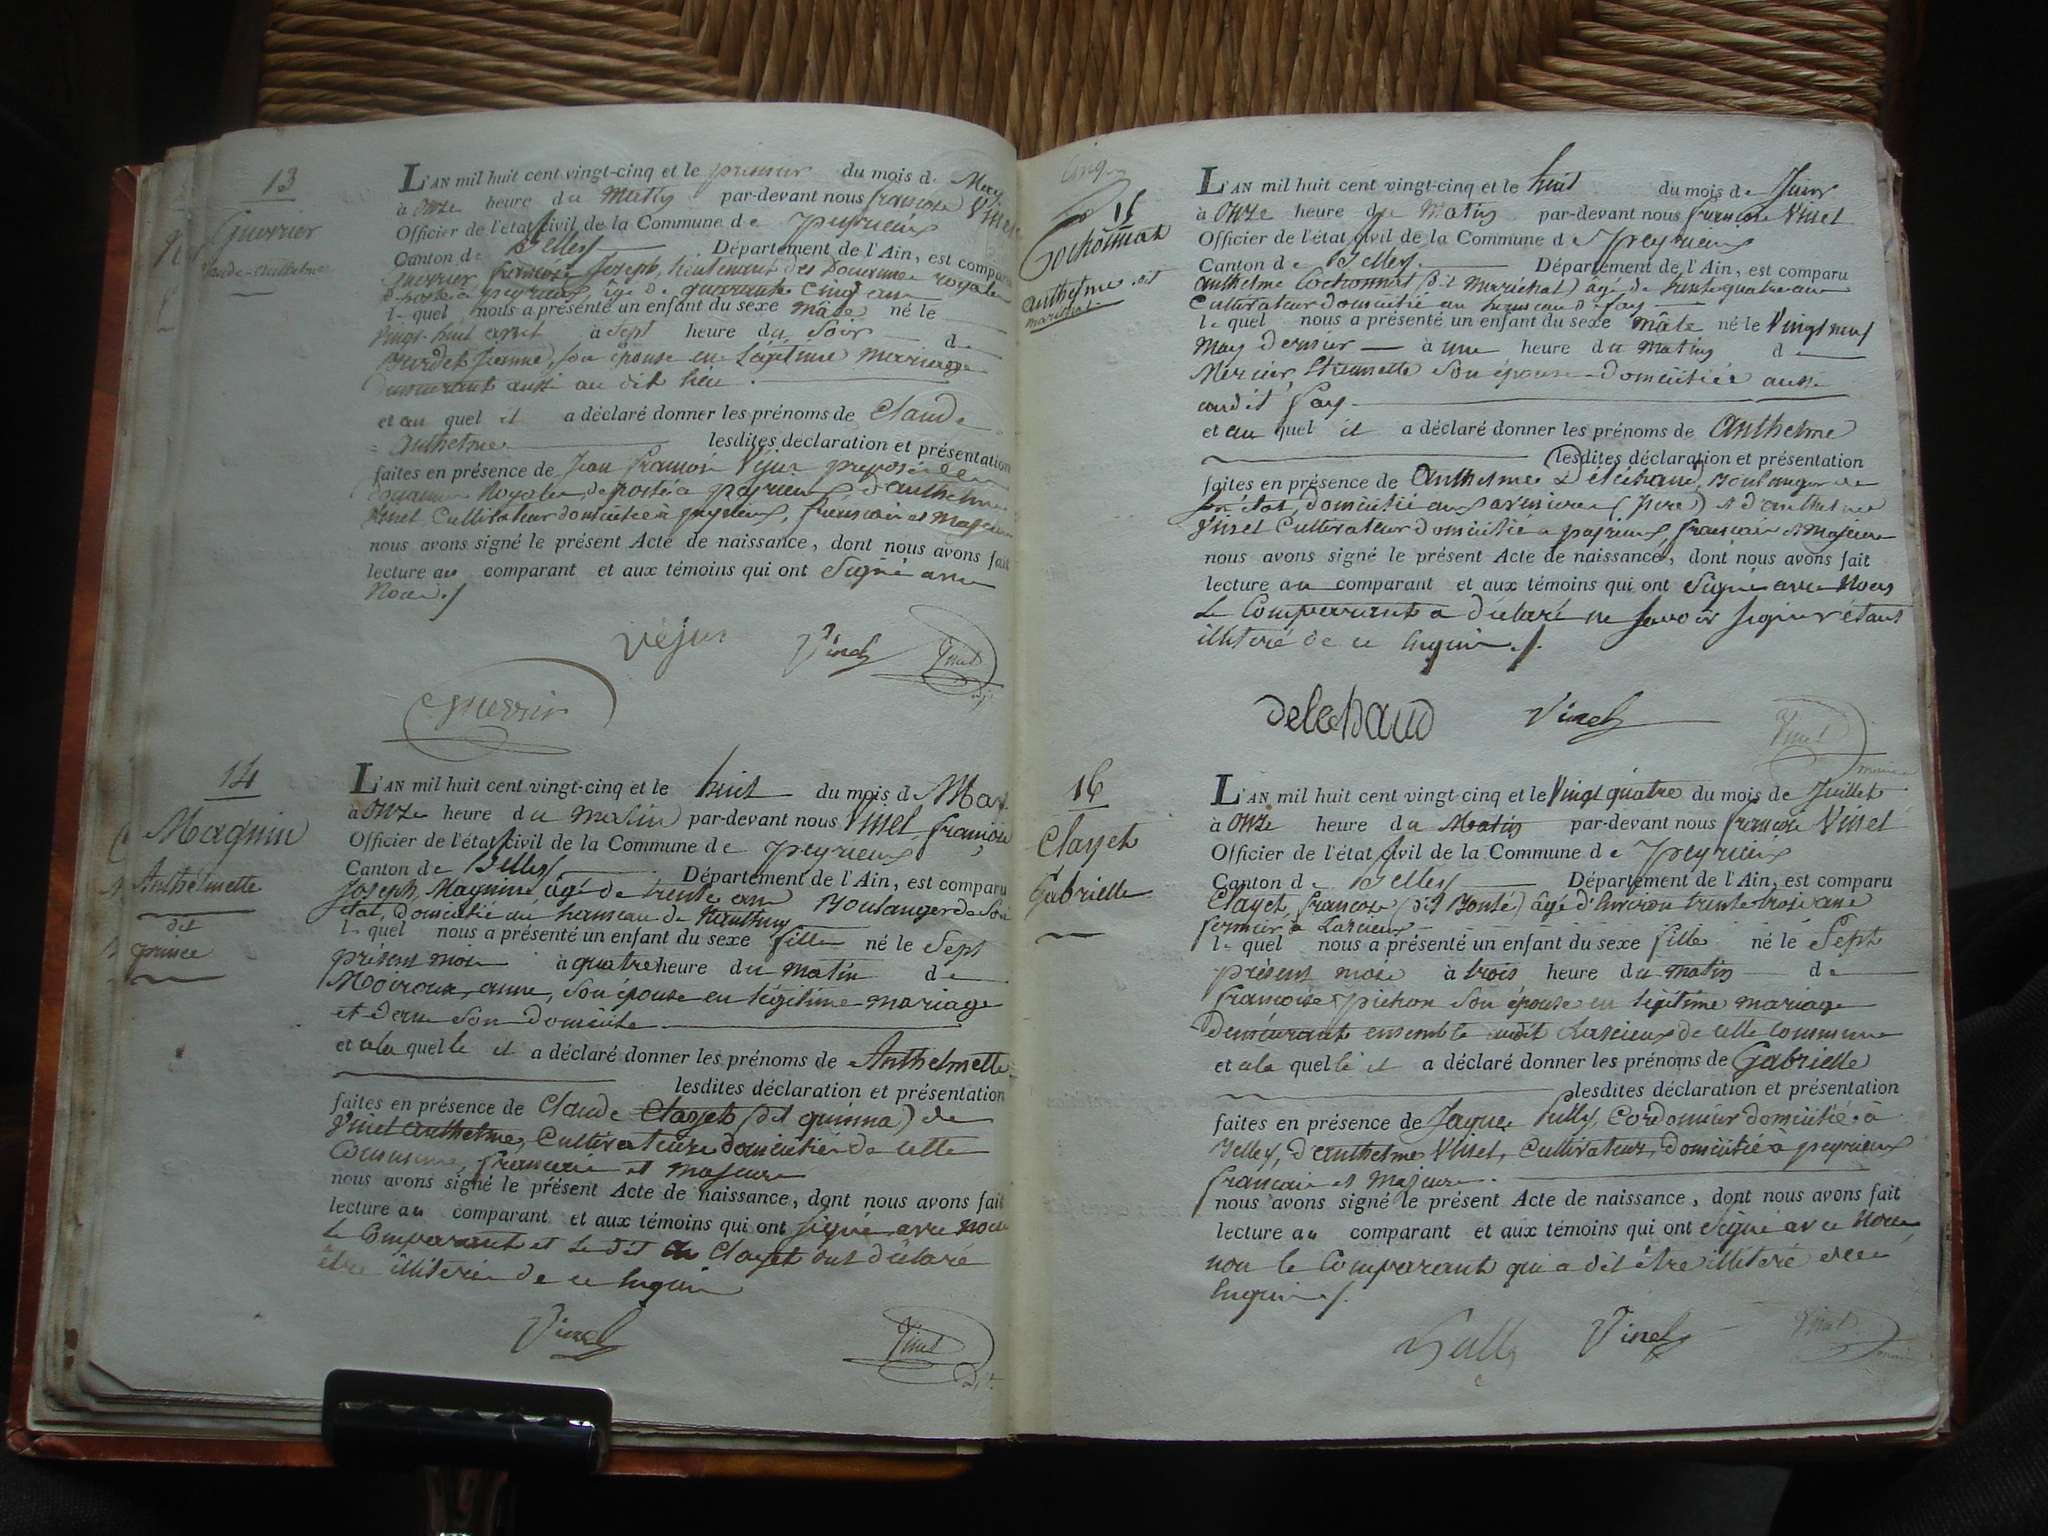 13
Guerrier
Claude-Anthelme
L'AN mil huit cent vingt-cinq et le premier du mois de May
à onze heure du Matin par-devant nous françois Vinet
Officier de l'état civil de la Commune de Peyrieux
Canton de Belley Département de l'Ain, est comparu
Guerrier françois Joseph, lieutenant des Douannes royales
à peyrieux âgé de quarante cinq ans
lequel nous a présenté un enfant du sexe mâle né le
vingt-huit avril à sept heure du Soir de
Burdet Jeanne, son épouse en Légitime mariage
demeurant aussi au dit lieu.
et au quel il a déclaré donner les prénoms de Claude
Anthelme lesdites déclaration et présentation
faites en présence de Jean françois Véjus preposé des
douannes Royales, de poste à peyrieux, d'anthelme
Vinet Cultivateur domicilié à peyrieux, françois et Majeurs
nous avons signé le présent Acte de naissance, dont nous avons fait
lecture au comparant et aux témoins qui ont Signé avec
Nous./
Véjus Vinet Vinet
Guerrier
14
Magnin
Anthelmette
dit
prince
L'AN mil huit cent vingt-cinq et le huit du mois de May
à onze heure du Matin par-devant nous Vinet françois
Officier de l'état civil de la Commune de peyrieux
Canton de Belley Département de l'Ain, est comparu
Joseph Magnin, âgé de trente ans Boulanger de Son
état, domicilié au hameau de
lequel nous a présenté un enfant du sexe fille né le Sept
présent mois à quatre heure du matin de
Moiroux, anne, Son épouse en légitime mariage
et de Son domicile
et a la quelle il a déclaré donner les prénoms de Anthelmette
lesdites déclaration et présentation
faites en présence de Claude Clayet (dit quinna) de
Vinet Anthelme, Cultivateurs domiciliés de cette
Commune, françois et majeurs
nous avons signé le présent Acte de naissance, dont nous avons fait
lecture au comparant et aux témoins qui ont signé avec nous
le Comparant et le dit Clayet ont déclaré
être illiterés de ce Enquis
Vinet Vinet
15
Cochonnat
Anthelme dit
marichat
L'AN mil huit cent vingt-cinq et le huit du mois de Juin
à onze heure du Matin par-devant nous françois Vinet
Officier de l'état civil de la Commune de Peyrieux
Canton de Belley Département de l'Ain, est comparu
Anthelme Cochonnat (dit Marichat) âgé de trente quatre ans
Cultivateur domicilié au hameau de fay
lequel nous a présenté un enfant du sexe mâle né le Vingt neuf
May dernier à une heure du matin de
Mercier, Etiennette Son épouse domiciliée aussi
audit fay
et au quel il a déclaré donner les prénoms de Anthelme
lesdites déclaration et présentation
faites en présence de Anthelme Deléchaud, Boulanger de
Son état, domicilié aux avenieres (Isere) et d'anthelme
Vinet Cultivateur domicilié à peyrieux, françois et Majeurs
nous avons signé le présent Acte de naissance, dont nous avons fait
lecture au comparant et aux témoins qui ont Signé avec Nous
le Comparant a déclaré ne savoir signer étant
illiteré de ce Enquis./.
delechaud Vinet Vinet
maire
16
Clayet
Gabrielle
L'AN mil huit cent vingt-cinq et le Vingt quatre du mois de Juillet
à onze heure du Matin par-devant nous françois Vinet
Officier de l'état civil de la Commune de Peyrieux
Canton de Belley Département de l'Ain, est comparu
Clayet, françois (dit Bonté) âgé d'Environ trente trois ans
fermier à Lassieux
lequel nous a présenté un enfant du sexe fille né le Sept
présent mois à trois heure du matin de
françoise pichon Son épouse en légitime mariage
demeurants ensemble audit Lassieux de cette Commune
et a la quelle il a déclaré donner les prénoms de Gabrielle
lesdites déclaration et présentation
faites en présence de Jaque Sully, Cordonnier domicilié à
Belley, d'anthelme Vinet, Cultivateur, domicilié à peyrieux
françois et Majeurs.
nous avons signé le présent Acte de naissance, dont nous avons fait
lecture au comparant et aux témoins qui ont Signé avec Nous
non le Comparant qui a dit être illiteré de ce
Enquis./.
Sully Vinet Vinet